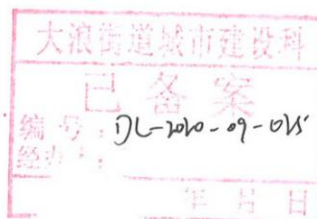 大浪街道城市建设科
已备案
编号：DL-2020-09-025
经办：
年 月 日